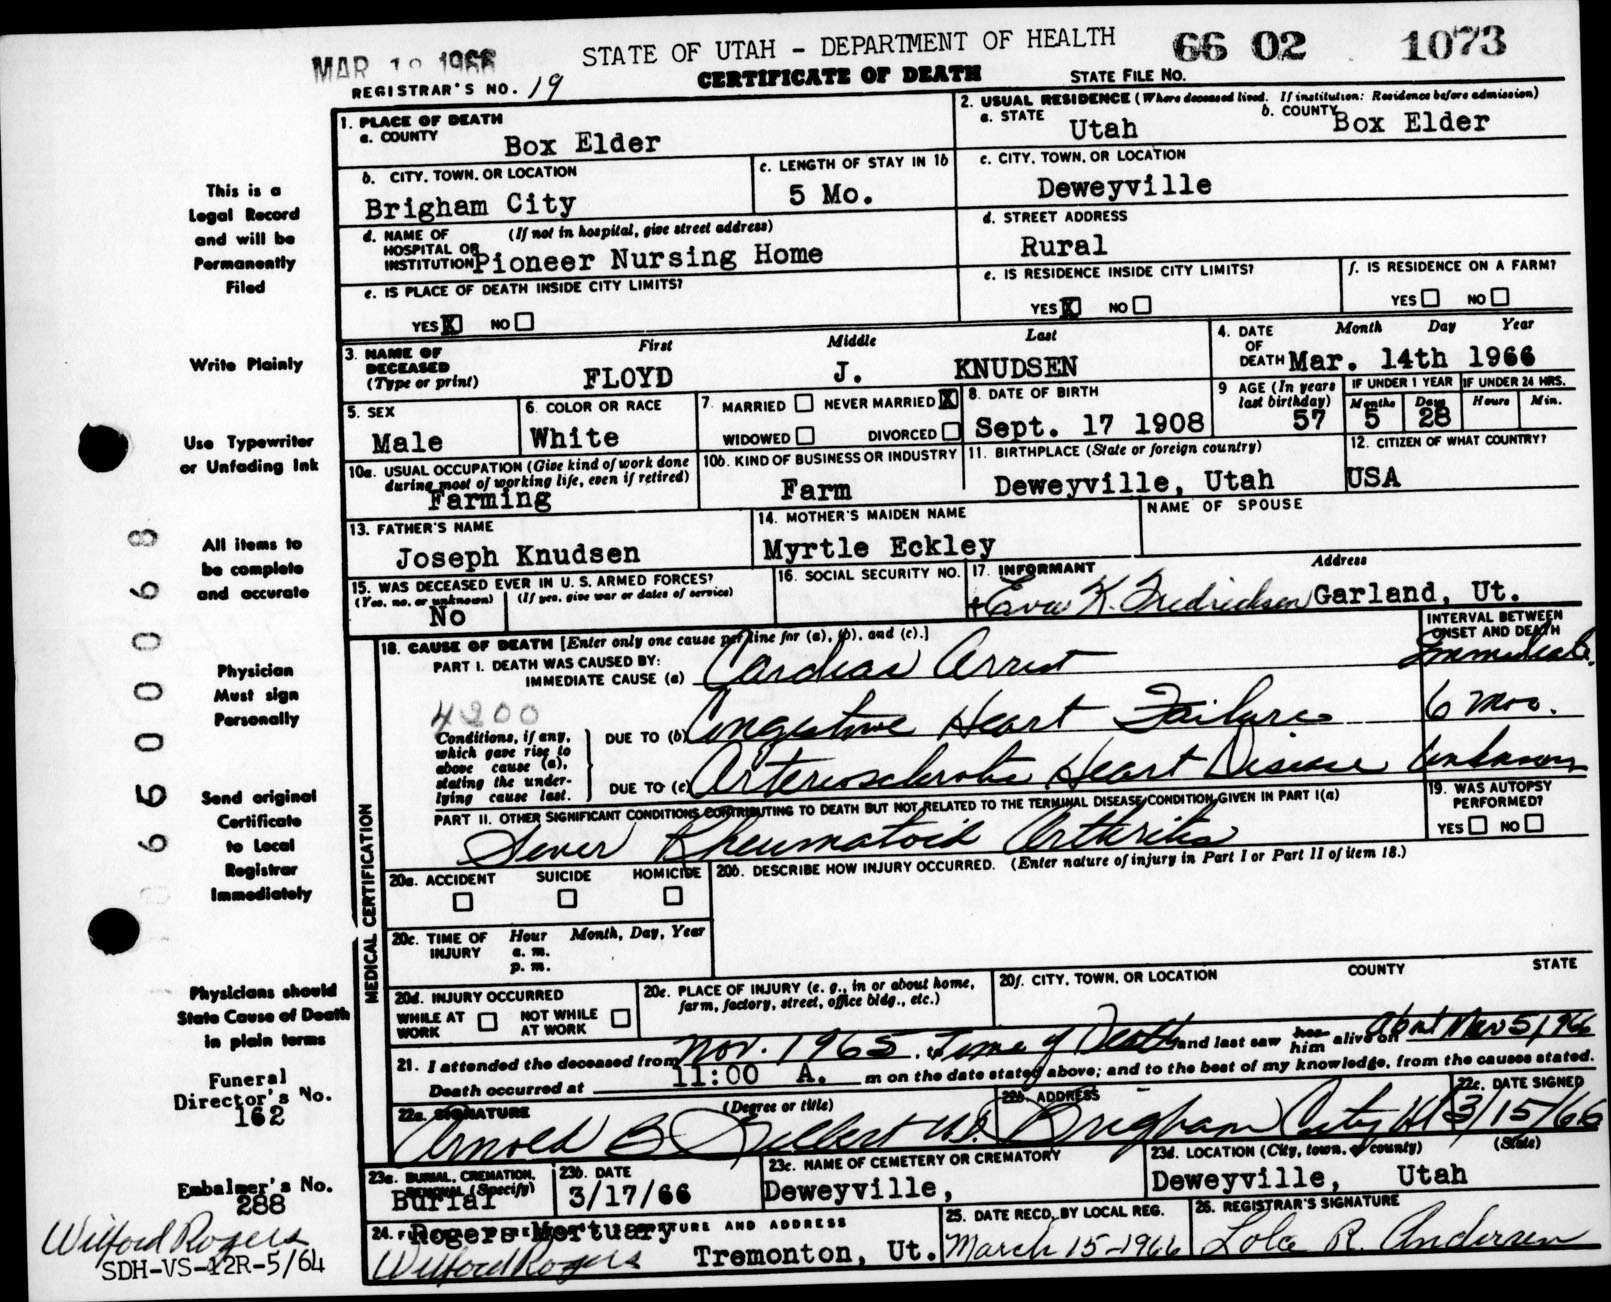 MAR 18 1966
STATE OF UTAH - DEPARTMENT OF HEALTH
66 02 1073
CERTIFICATE OF DEATH
REGISTRAR'S NO. 19
STATE FILE NO.
1. PLACE OF DEATH
a. COUNTY
Box Elder
2. USUAL RESIDENCE (Where deceased lived. If institution: Residence before admission)
a. STATE
Utah
b. COUNTY
Box Elder
b. CITY, TOWN, OR LOCATION
Brigham City
c. LENGTH OF STAY IN 1b
5 Mo.
c. CITY, TOWN, OR LOCATION
Deweyville
d. NAME OF HOSPITAL OR INSTITUTION
(If not in hospital, give street address)
Pioneer Nursing Home
d. STREET ADDRESS
Rural
e. IS PLACE OF DEATH INSIDE CITY LIMITS?
YES X NO
e. IS RESIDENCE INSIDE CITY LIMITS?
YES X NO
f. IS RESIDENCE ON A FARM?
YES NO
3. NAME OF DECEASED (Type or print)
First Middle Last
FLOYD J. KNUDSEN
4. DATE OF DEATH
Month Day Year
Mar. 14th 1966
5. SEX
Male
6. COLOR OR RACE
White
7. MARRIED NEVER MARRIED X
WIDOWED DIVORCED
8. DATE OF BIRTH
Sept. 17 1908
9 AGE (In years last birthday)
57
IF UNDER 1 YEAR
Months Days
5 28
IF UNDER 24 HRS.
Hours Min.
10a. USUAL OCCUPATION (Give kind of work done during most of working life, even if retired)
Farming
10b. KIND OF BUSINESS OR INDUSTRY
Farm
11. BIRTHPLACE (State or foreign country)
Deweyville, Utah
12. CITIZEN OF WHAT COUNTRY?
USA
13. FATHER'S NAME
Joseph Knudsen
14. MOTHER'S MAIDEN NAME
Myrtle Eckley
NAME OF SPOUSE
15. WAS DECEASED EVER IN U. S. ARMED FORCES?
(Yes, no, or unknown) (If yes, give war or dates of service)
No
16. SOCIAL SECURITY NO.
17. INFORMANT Address
Eva K. Fredricksen Garland, Ut.
18. CAUSE OF DEATH [Enter only one cause per line for (a), (b), and (c).]
INTERVAL BETWEEN ONSET AND DEATH
PART I. DEATH WAS CAUSED BY:
IMMEDIATE CAUSE (a) Cardiac Arrest Immediate
4200
Conditions, if any, which gave rise to above cause (a), stating the underlying cause last.
DUE TO (b) Congestive Heart Failure 6 mos.
DUE TO (c) Arteriosclerotic Heart Disease unknown
PART II. OTHER SIGNIFICANT CONDITIONS CONTRIBUTING TO DEATH BUT NOT RELATED TO THE TERMINAL DISEASE CONDITION GIVEN IN PART I(a)
Sever Rheumatoid Arthritis
19. WAS AUTOPSY PERFORMED?
YES NO
MEDICAL CERTIFICATION
20a. ACCIDENT SUICIDE HOMICIDE
20b. DESCRIBE HOW INJURY OCCURRED. (Enter nature of injury in Part I or Part II of item 18.)
20c. TIME OF INJURY
Hour Month, Day, Year
a. m.
p. m.
20d. INJURY OCCURRED
WHILE AT WORK NOT WHILE AT WORK
20e. PLACE OF INJURY (e. g., in or about home, farm, factory, street, office bldg., etc.)
20f. CITY, TOWN, OR LOCATION COUNTY STATE
21. I attended the deceased from Nov. 1965. Time of Death and last saw her him alive on about Mar 5, 1966
Death occurred at 11:00 A. m on the date stated above; and to the best of my knowledge, from the causes stated.
22a. SIGNATURE (Degree or title)
Arnold B Gilbert M.D.
22b. ADDRESS
Brigham City Ut
22c. DATE SIGNED
3/15/66
23a. BURIAL, CREMATION, REMOVAL (Specify)
Burial
23b. DATE
3/17/66
23c. NAME OF CEMETERY OR CREMATORY
Deweyville,
23d. LOCATION (City, town, or county) (State)
Deweyville, Utah
Rogers Mortuary
AND ADDRESS
Wilford Rogers Tremonton, Ut.
25. DATE RECD. BY LOCAL REG.
March 15-1966
26. REGISTRAR'S SIGNATURE
Lola R. Andersen
This is a
Legal Record
and will be
Permanently
Filed
Write Plainly
Use Typewriter
or Unfading Ink
All items to
be complete
and accurate
Physician
Must sign
Personally
Send original
Certificate
to Local
Registrar
Immediately
Physicians should
State Cause of Death
in plain terms
Funeral
Director's No.
162
Embalmer's No.
288
Wilford Rogers
SDH-VS-12R-5/64